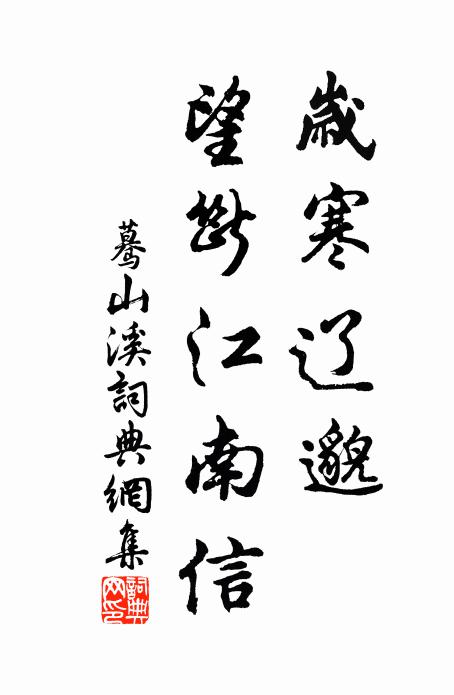 歲寒辽邈
望斷江南信
驀山溪詞典網集
詞典网印